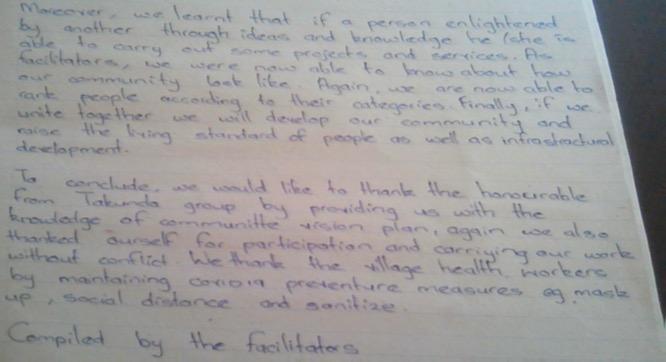 Moreover, we learnt that if a person enlightened
by another through ideas and knowledge he/she is
able to carry out some projects and services. As
facilitators, we were now able to know about how
our community look like. Again, we are now able to
rank people according to their categories. Finally, if we
unite together we will develop our community and
raise the living standard of people as well as infrastractural
development.
To conclude, we would like to thank the honourable
from Takunda group by providing us with the
knowladge of communitte vision plan, again we also
thanked ourself for participation and carriying our work
without conflict. We thank the village health workers
by maintaning covid19 preventure measures eg mask
up, social distance and sanitize.
Compiled by the facilitators